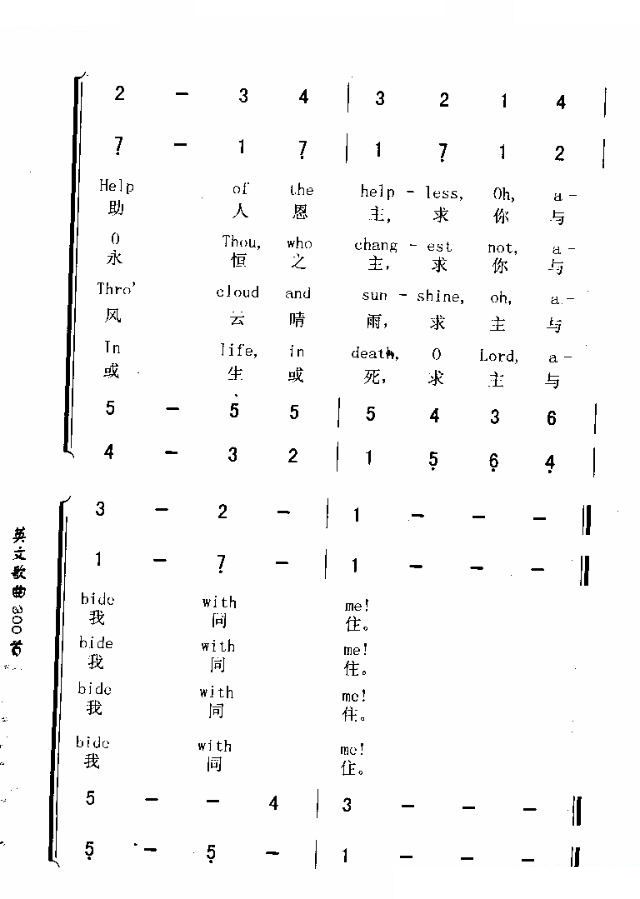 2 – 3 4 | 3 2 1 4 |
7 – 1 7 | 1 7 1 2 |
Help of the help - less, Oh, a -
助 人 恩 主, 求 你 与
O Thou, who chang - est not, a -
永 恒 之 主, 求 你 与
Thro' cloud and sun - shine, oh, a -
风 云 晴 雨, 求 主 与
In life, in death, O Lord, a -
或 生 或 死, 求 主 与
5 – 5 5 | 5 4 3 6 |
4 – 3 2 | 1 5 6 4 |
3 – 2 – | 1 – – – ‖
1 – 7 – | 1 – – – ‖
bide with me!
我 同 住。
bide with me!
我 同 住。
bide with me!
我 同 住。
bide with me!
我 同 住。
5 – – 4 | 3 – – – ‖
5 – 5 – | 1 – – – ‖
英文歌曲300首